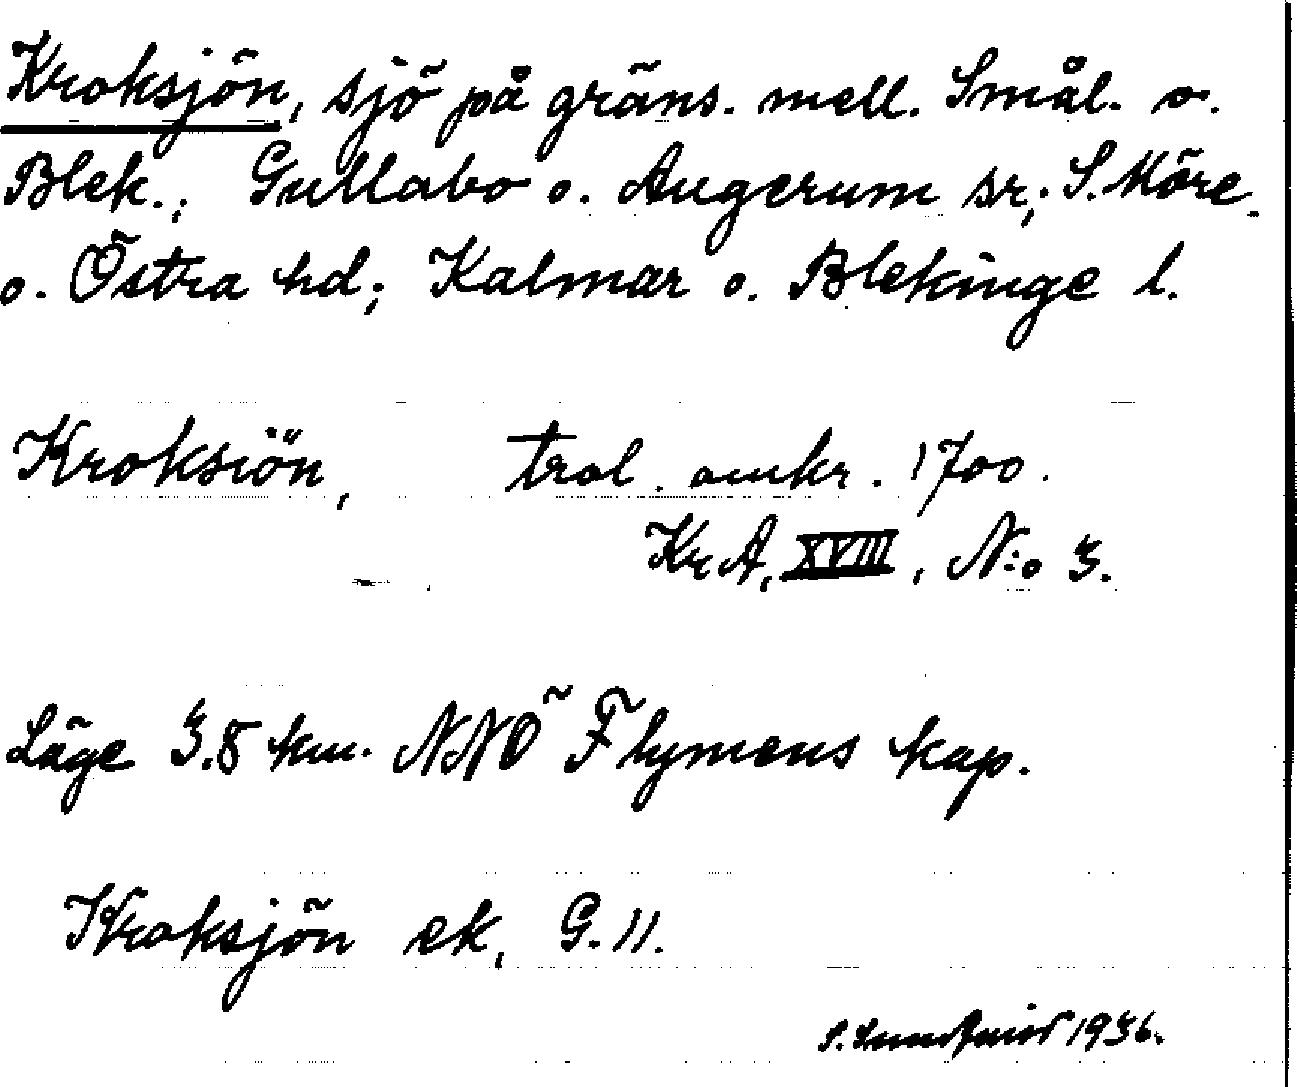 Kroksjön, sjö på gräns. mell. Smål. o.
Blek.; Gullabo o. Augerum sr; S. Möre
o. Östra hd; Kalmar o. Blekinge l.
Kroksiön, trol. omkr. 1700.
KrA, XVIII, N:o 3.
Läge 3.8 km. NNÖ Flymens kap.
Kroksjön ek, G. 11.
1936.